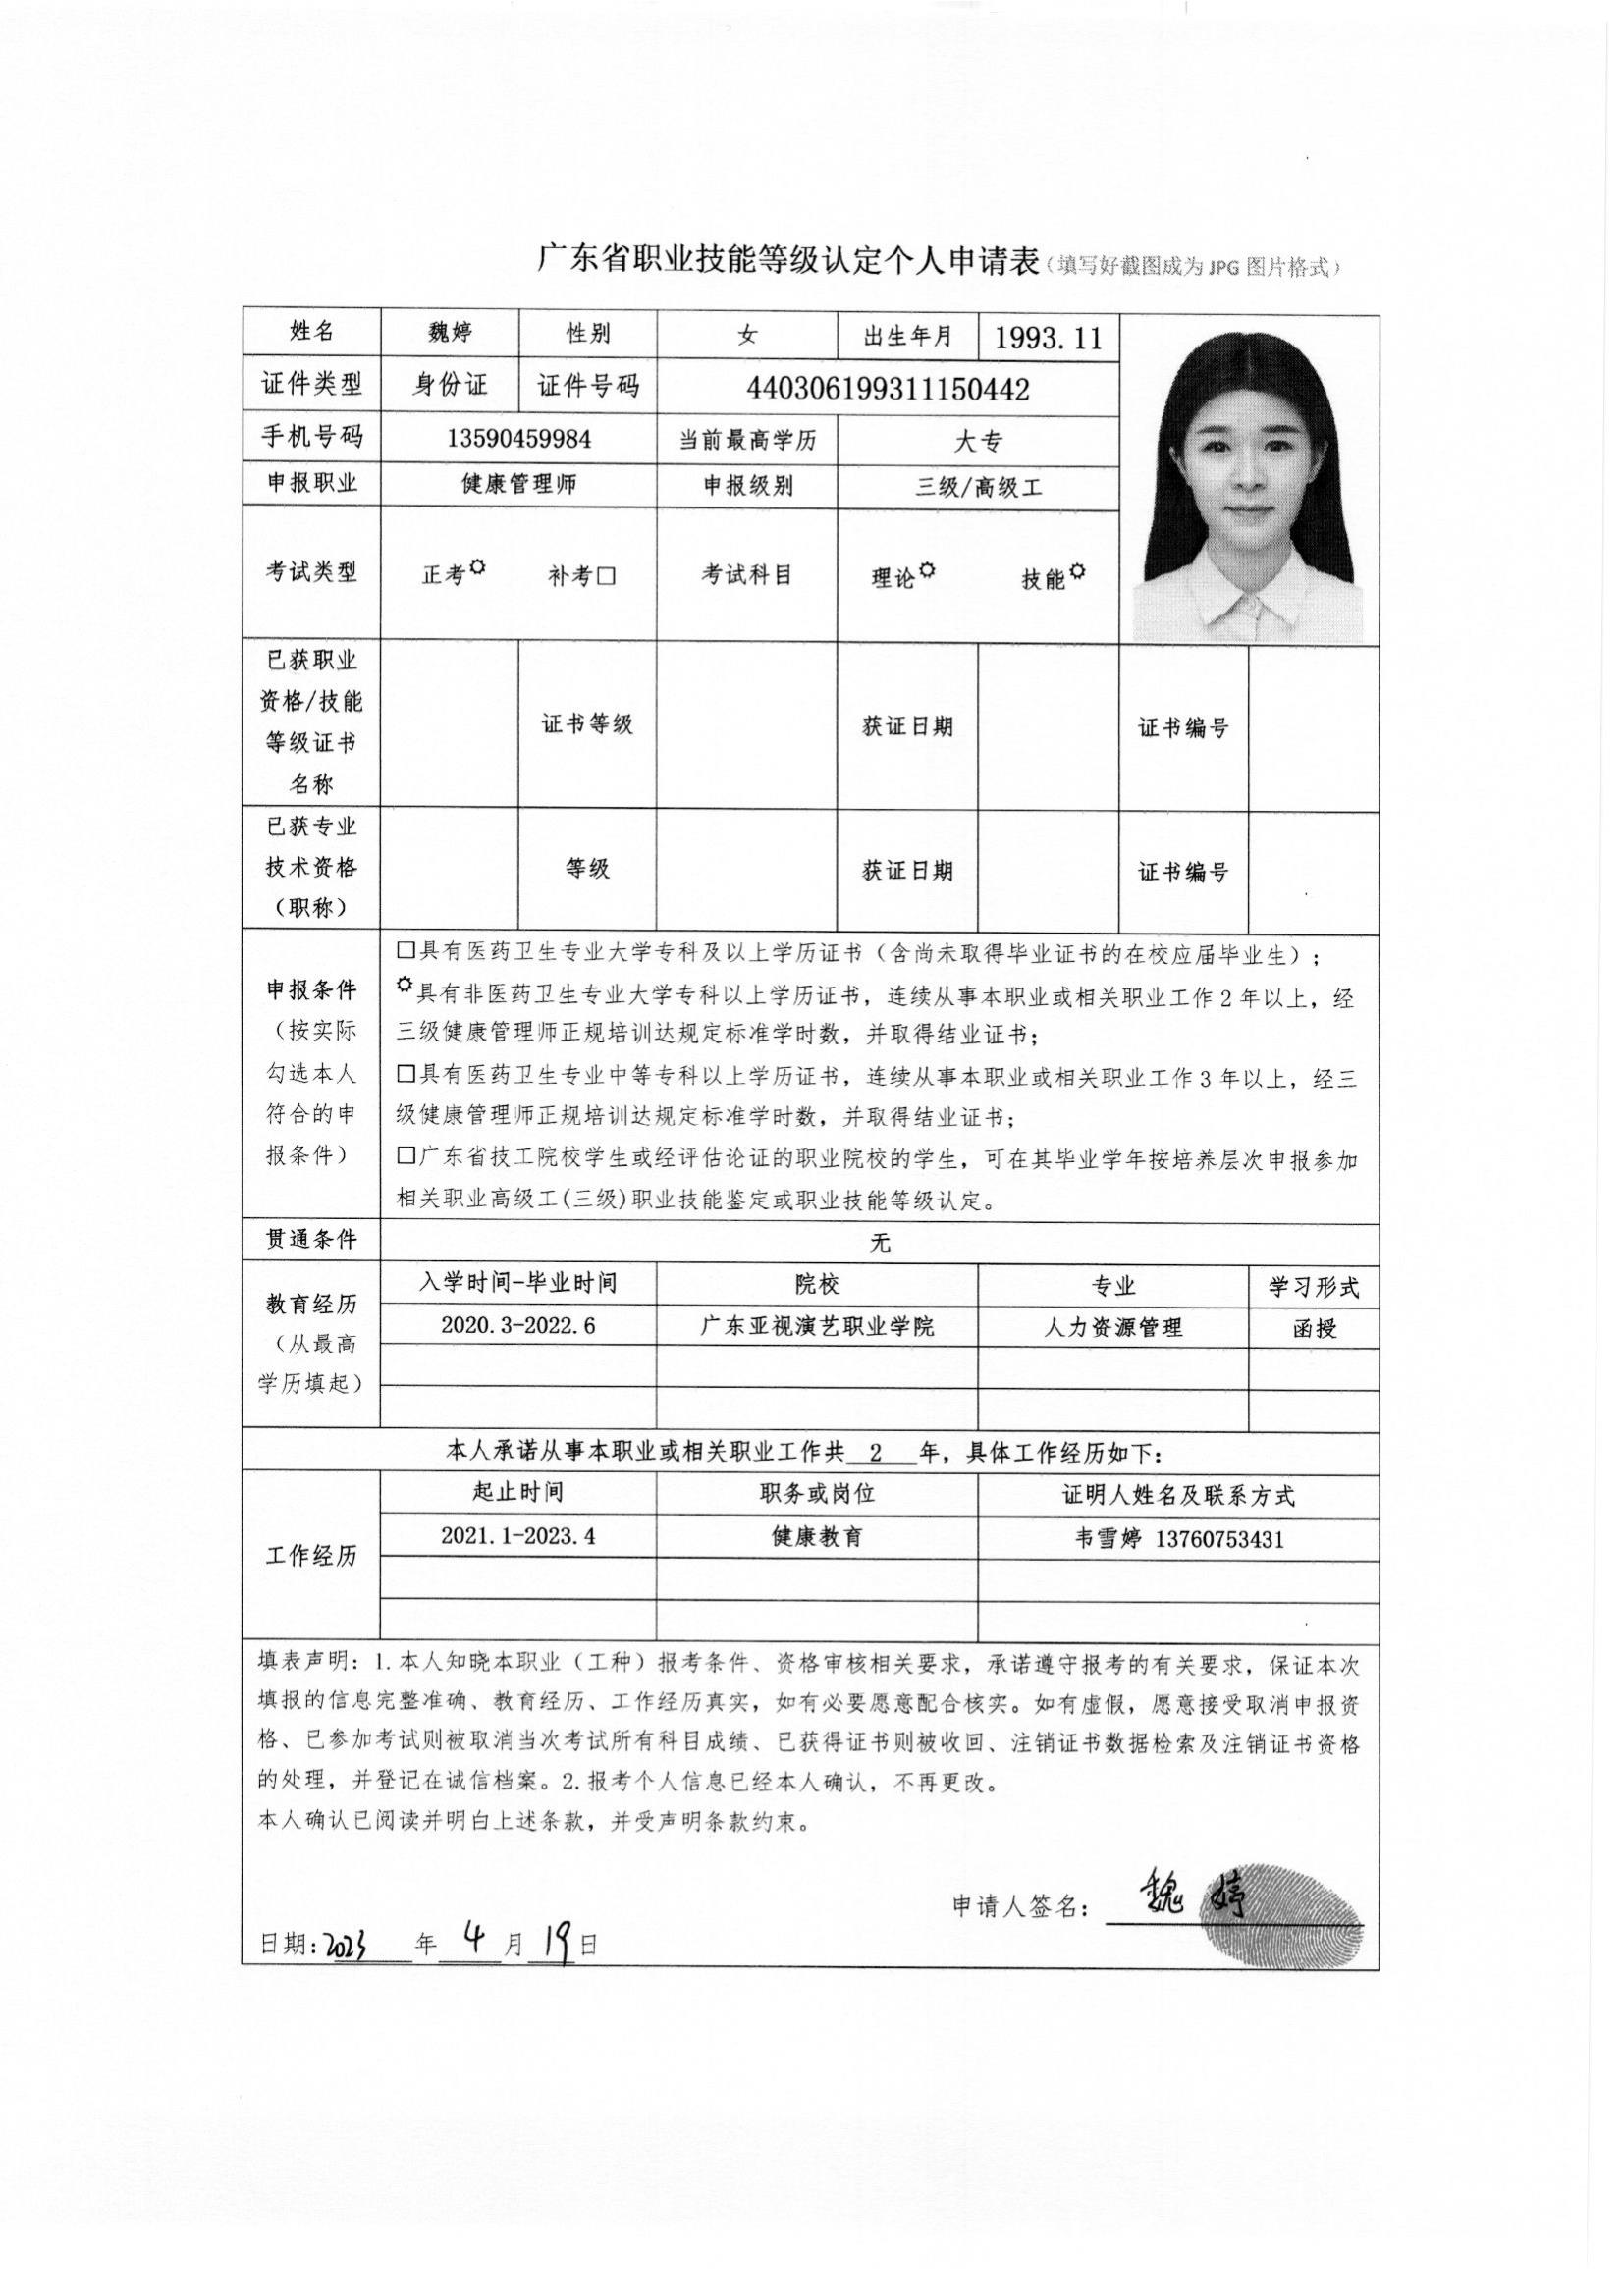 广东省职业技能等级认定个人申请表（填写好截图成为 JPG 图片格式）
姓名 魏婷 性别 女 出生年月 1993.11
证件类型 身份证 证件号码 440306199311150442
手机号码 13590459984 当前最高学历 大专
申报职业 健康管理师 申报级别 三级/高级工
考试类型 正考 补考□ 考试科目 理论 技能
已获职业
资格/技能
等级证书
名称
证书等级 获证日期 证书编号
已获专业
技术资格
（职称）
等级 获证日期 证书编号
申报条件
（按实际
勾选本人
符合的申
报条件）
□具有医药卫生专业大学专科及以上学历证书（含尚未取得毕业证书的在校应届毕业生）；
具有非医药卫生专业大学专科以上学历证书，连续从事本职业或相关职业工作 2 年以上，经
三级健康管理师正规培训达规定标准学时数，并取得结业证书；
□具有医药卫生专业中等专科以上学历证书，连续从事本职业或相关职业工作 3 年以上，经三
级健康管理师正规培训达规定标准学时数，并取得结业证书；
□广东省技工院校学生或经评估论证的职业院校的学生，可在其毕业学年按培养层次申报参加
相关职业高级工(三级)职业技能鉴定或职业技能等级认定。
贯通条件 无
教育经历
（从最高
学历填起）
入学时间-毕业时间 院校 专业 学习形式
2020.3-2022.6 广东亚视演艺职业学院 人力资源管理 函授
本人承诺从事本职业或相关职业工作共 2 年，具体工作经历如下：
工作经历
起止时间 职务或岗位 证明人姓名及联系方式
2021.1-2023.4 健康教育 韦雪婷 13760753431
填表声明：1.本人知晓本职业（工种）报考条件、资格审核相关要求，承诺遵守报考的有关要求，保证本次
填报的信息完整准确、教育经历、工作经历真实，如有必要愿意配合核实。如有虚假，愿意接受取消申报资
格、已参加考试则被取消当次考试所有科目成绩、已获得证书则被收回、注销证书数据检索及注销证书资格
的处理，并登记在诚信档案。2.报考个人信息已经本人确认，不再更改。
本人确认已阅读并明白上述条款，并受声明条款约束。
申请人签名：魏婷
日期:2023 年 4 月 19 日